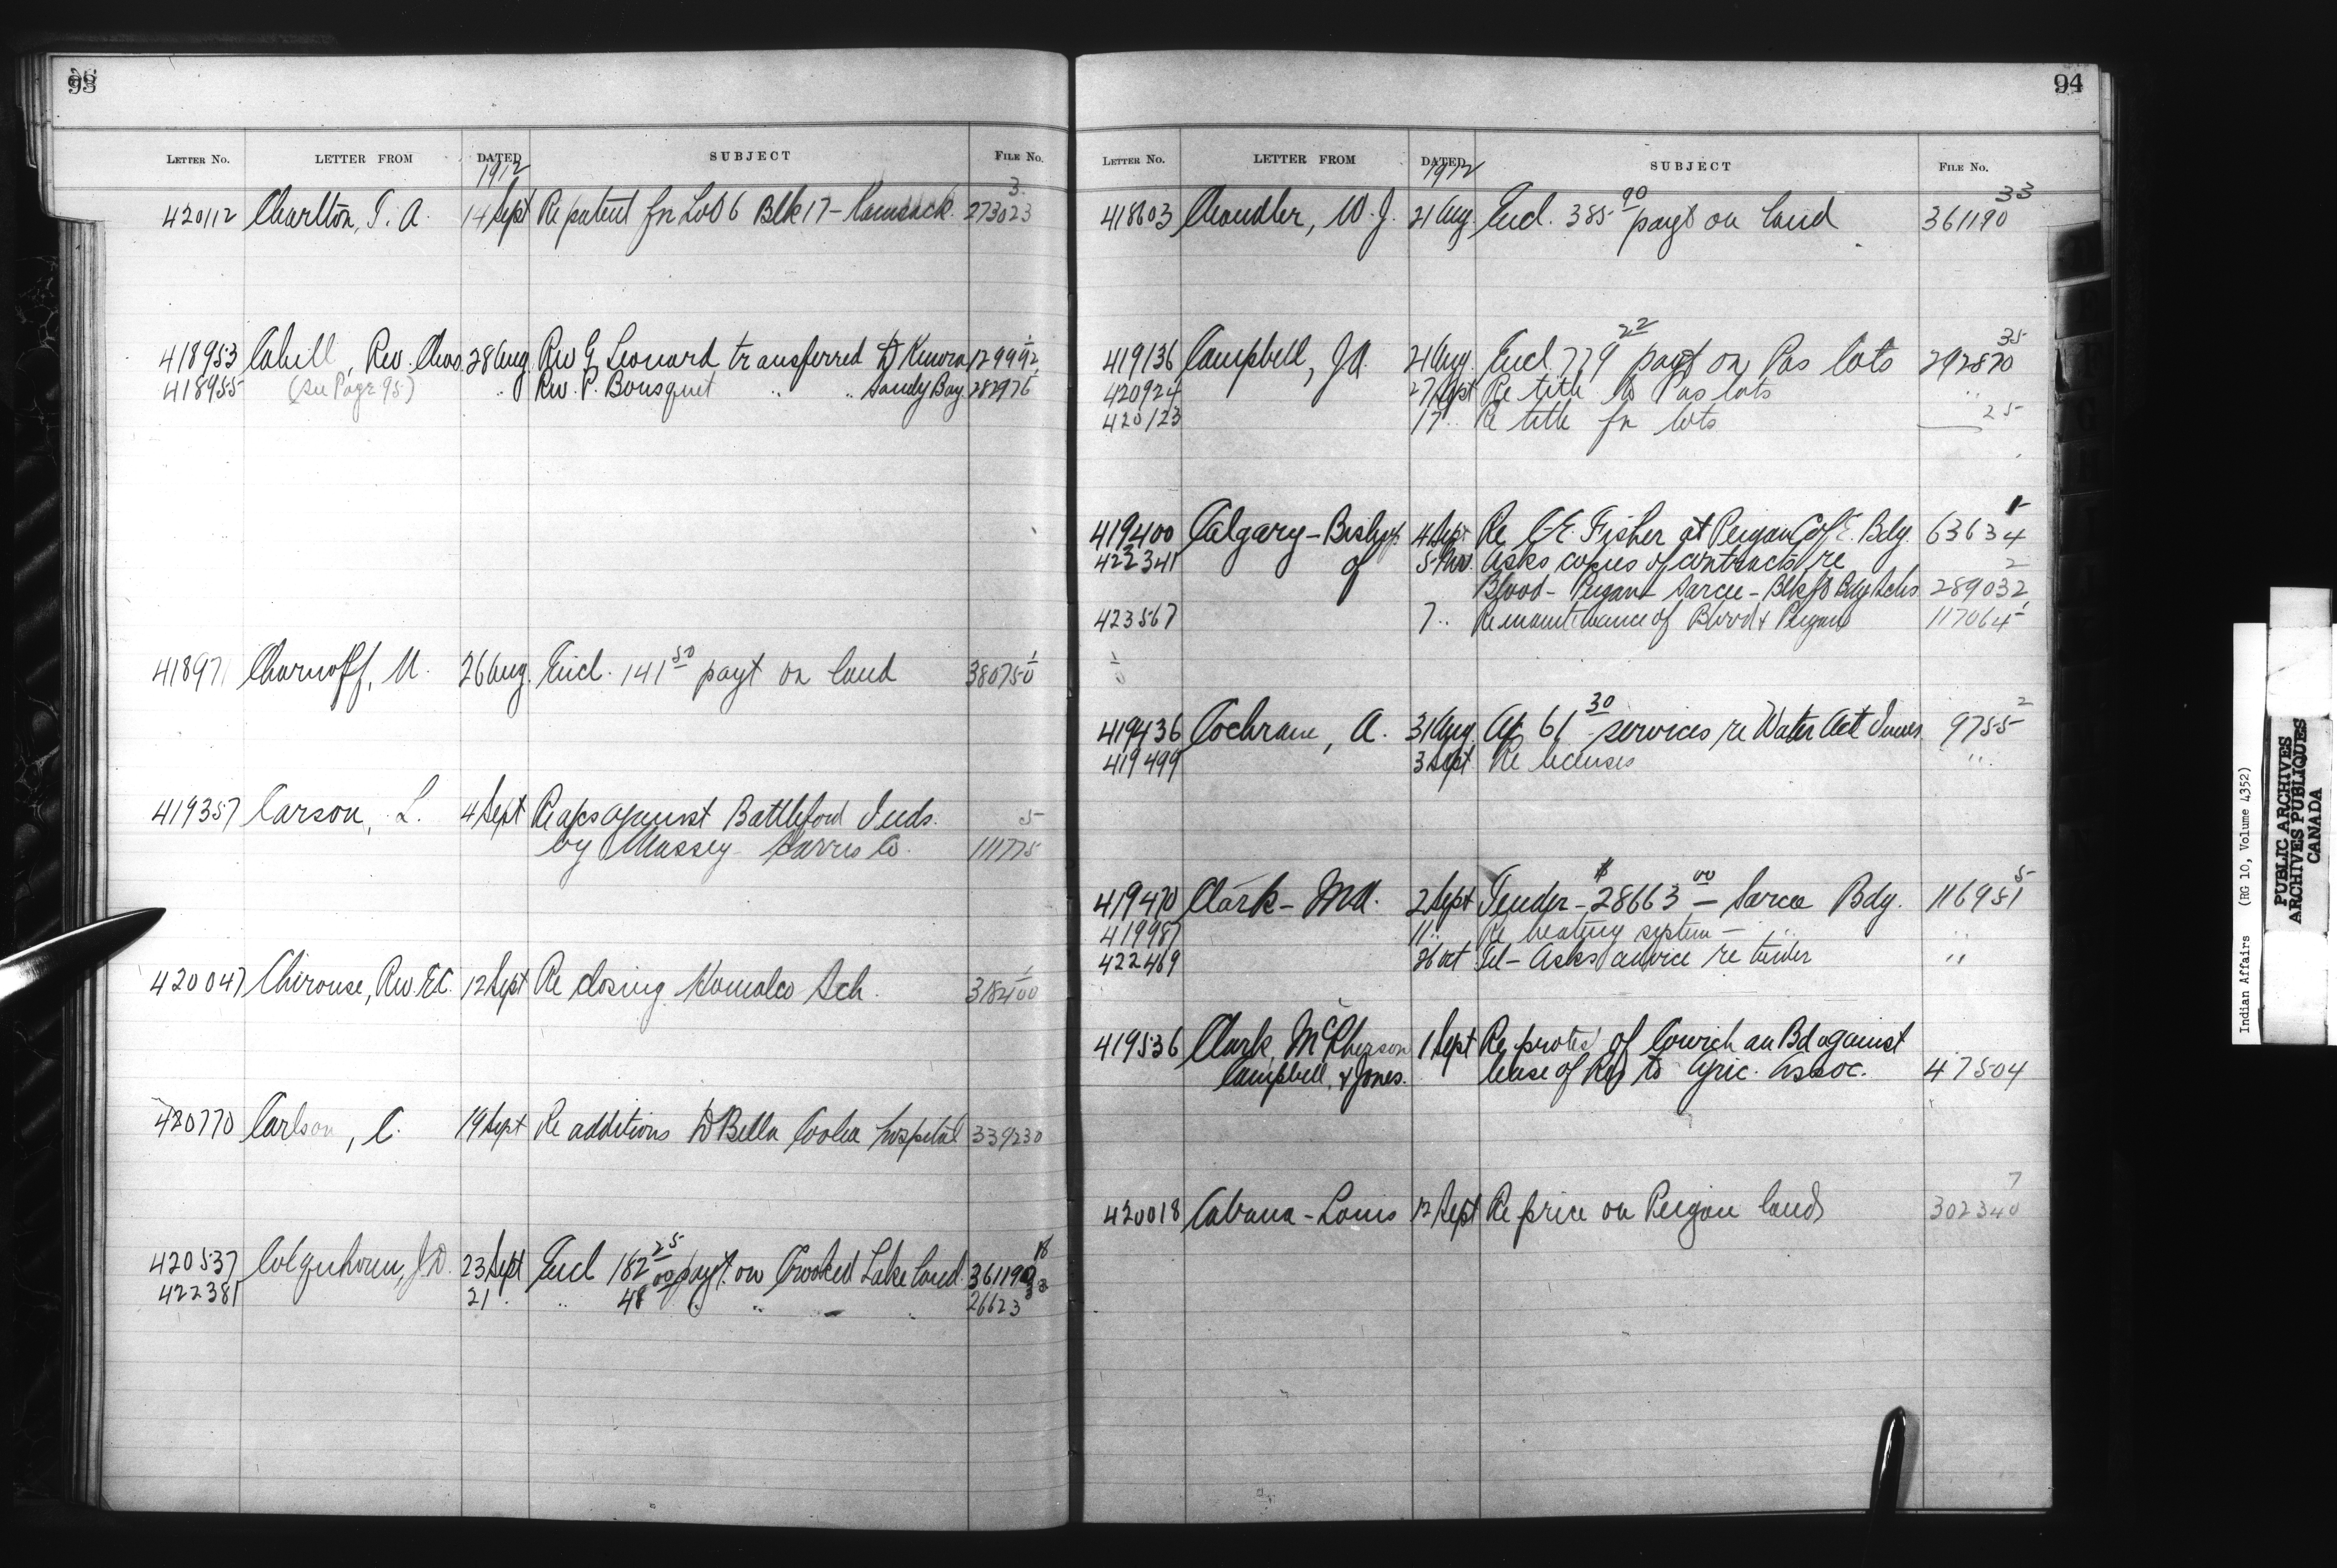 93
LETTER No. LETTER FROM DATED SUBJECT FILE No.
1912
3
420112 Charlton, T. A. 14 Sept Re patent for Lot 6 Blk 17 - Kamsack. 273023
418953 Cahill, Rev. Chas. 28 Aug. Rev G Leonard transferred to Kenora 129992
418955 (See Page 95) " Rev. P. Bousquet " " Sandy Bay 282976
41897 Charnoff, M. 26 Aug. Encl. 141 50 payt on land 380750
419357 Carson, L. 4 Sept Re a/cs against Battleford Inds. 5
by Massey Harris Co. 111775
420047 Chirouse, Rev. E.C. 12 Sept Re closing Homalco Sch. 318400
420770 Carlson, C. 19 Sept Re additions to Bella Coola hospital 339230
420537 Colquhoun, J.D. 23 Sept Encl 182 25 payt. on Crooked Lake land 361190 18
422381 21 " 48 00 " " 26623 33
94
LETTER No. LETTER FROM DATED SUBJECT FILE No.
1912
418603 Chandler, W. J. 21 Aug. Encl. 385 90 payt on land 361190 33
419136 Campbell, J.A. 21 Aug. Encl 779 22 payt on Pas lots 292870 35
420924 27 Sept Re title to Pas lots "
420123 17 " Re title for lots 25
419400 Calgary - Bishop 4 Sept Re C.E. Fisher at Peigan C of E. Bdg. 63634 1
422341 of 5 Nov. Asks copies of contracts re 2
Blood - Peigan - Sarcee - Blkft Bdg Schs 289032
423567 7 " Re maintenance of Blood & Peigan 117064 1
419436 Cochrane, A. 31 Aug. a/c 61 30 services re Water Act 9755 2
419499 3 Sept Re licenses "
419470 Clark - M A. 2 Sept Tender - $28663 00 - Sarcee Bdg. 116951 5
419987 11 " Re heating system - " "
422469 26 Oct Tel - Asks advice re tender "
419536 Clark, McPherson 1 Sept Re protest of Cowichan Bd against
Campbell, & Jones. lease of Res to Agric. Assoc. 47504
7
420018 Cabana - Louis 12 Sept Re price on Peigan lands 302340
Indian Affairs (RG 10, Volume 4352)
PUBLIC ARCHIVES
ARCHIVES PUBLIQUES
CANADA